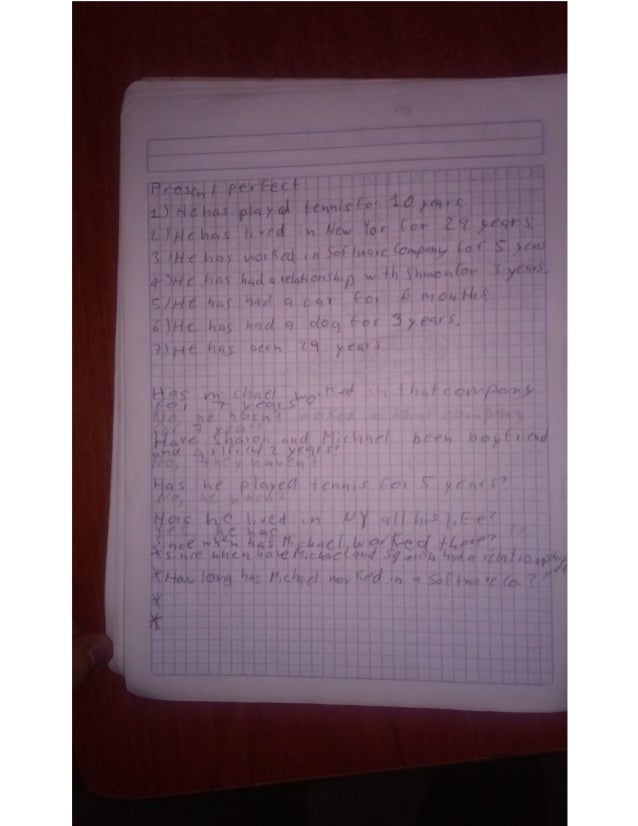 Present perfect
1) He has played tennis for 10 years
2) He has lived in New Yor for 29 years
3) He has worked in Software Company for 5 years
4) He has had a relationship with for 3 years.
5) He has had a car for 6 months
6) He has had a dog for 3 years.
7) He has been 29 years
Has michael worked in that company
for 7 years?
No, he hasn't worked in that company
for 7 years
Have Sharon and Michael been boyfriend
and girlfriend 2 years?
No, they haven't
Has he played tennis for 5 years?
No, he hasn't
Has he lived in NY all his life?
Yes he has
Since when has Michael worked there?
* Since when have Michael and had a relationship
* How long has Michael worked in a Software Co.?
*
*